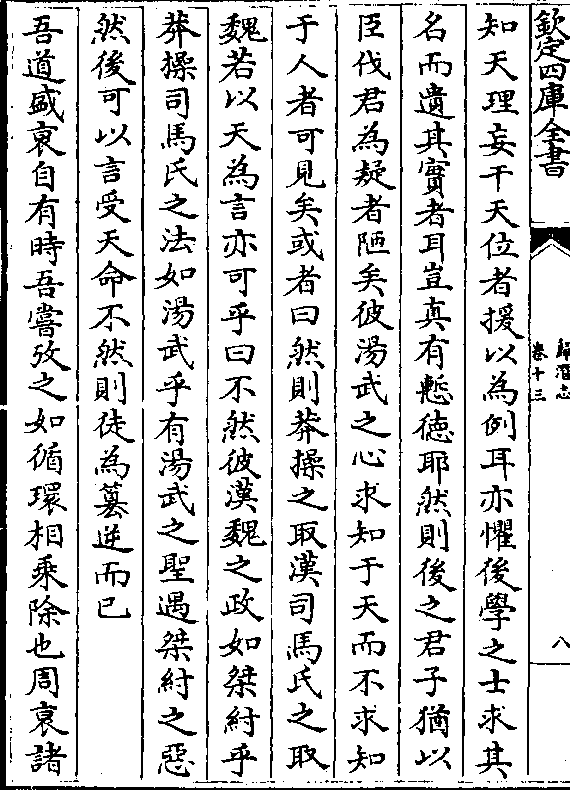 欽定四庫全書
歸潛志
卷十三
八
知天理妄干天位者援以為例耳亦懼後學之士求其
名而遺其實者耳豈真有慙德耶然則後之君子猶以
臣伐君為疑者陋矣彼湯武之心求知于天而不求知
于人者可見矣或者曰然則莽操之取漢司馬氏之取
魏若以天為言亦可乎曰不然彼漢魏之政如桀紂乎
莽操司馬氏之法如湯武乎有湯武之聖遇桀紂之惡
然後可以言受天命不然則徒為簒逆而已
吾道盛衰自有時吾嘗攷之如循環相乘除也周衰諸